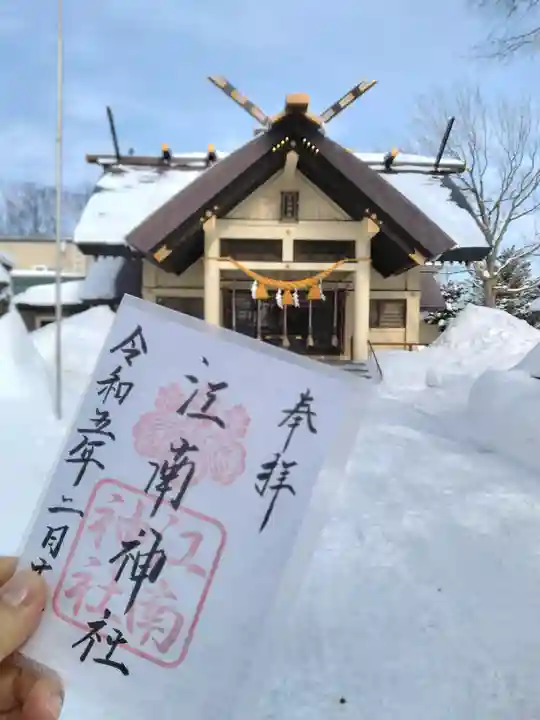 奉拝
江南神社
江南
神社
令和五年二月